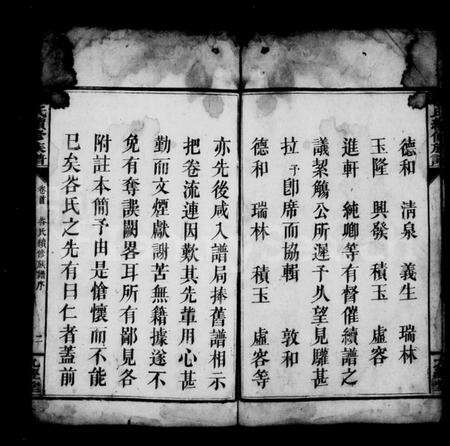 德和　清泉　義生　瑞林
玉隆　興發　積玉　虛容
進軒　純卿等有督催續譜之
議絜觴公所遲予久望見驩甚
拉予卽席而協輯　敦和
德和　瑞林　積玉　虛容等
亦先後咸入譜局捧舊譜相示
把卷流連因歎其先輩用心甚
勤而文煙獻謝苦無籍據遂不
免有奪誤闕畧耳所有鄙見各
附註本簡予由是愴懷而不能
已矣昝氏之先有曰仁者蓋前
卷首　昝氏續修族譜序　二